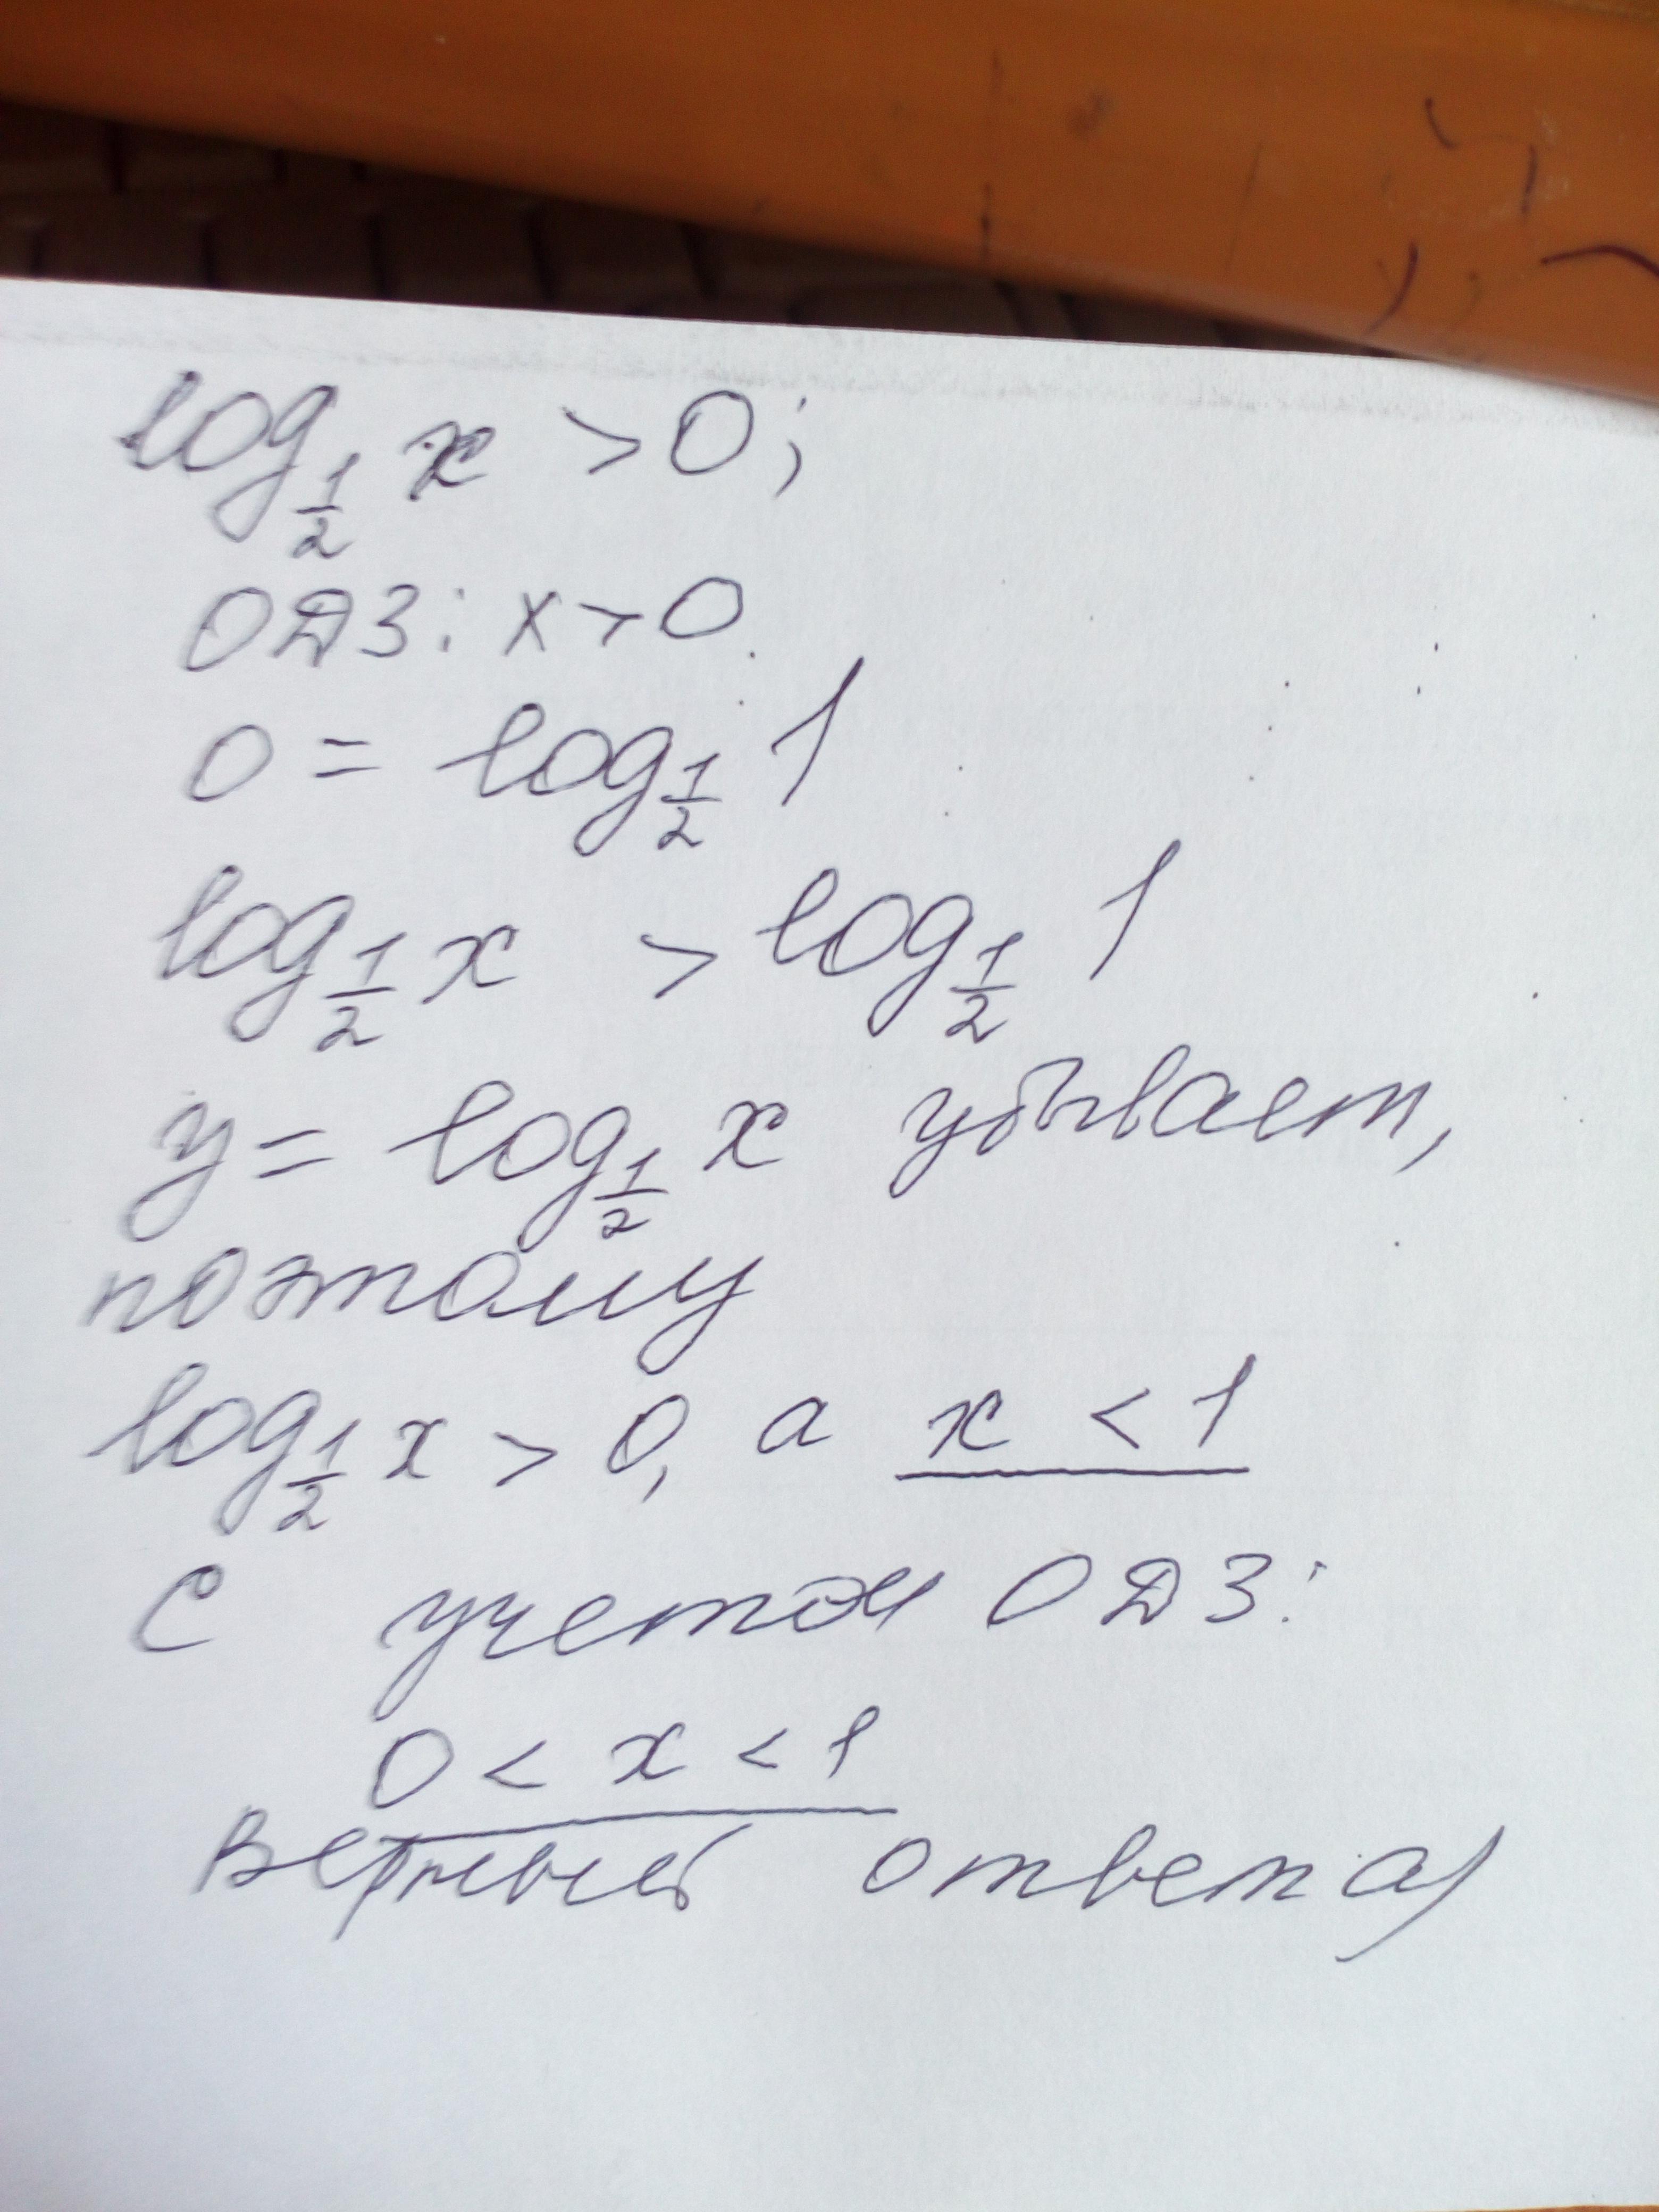 log½ x > 0;
ОДЗ: x > 0.
0 = log½ 1
log½ x > log½ 1
y = log½ x убывает,
поэтому
log½ x > 0, а x < 1
С учетом ОДЗ:
0 < x < 1
Верный ответ а)